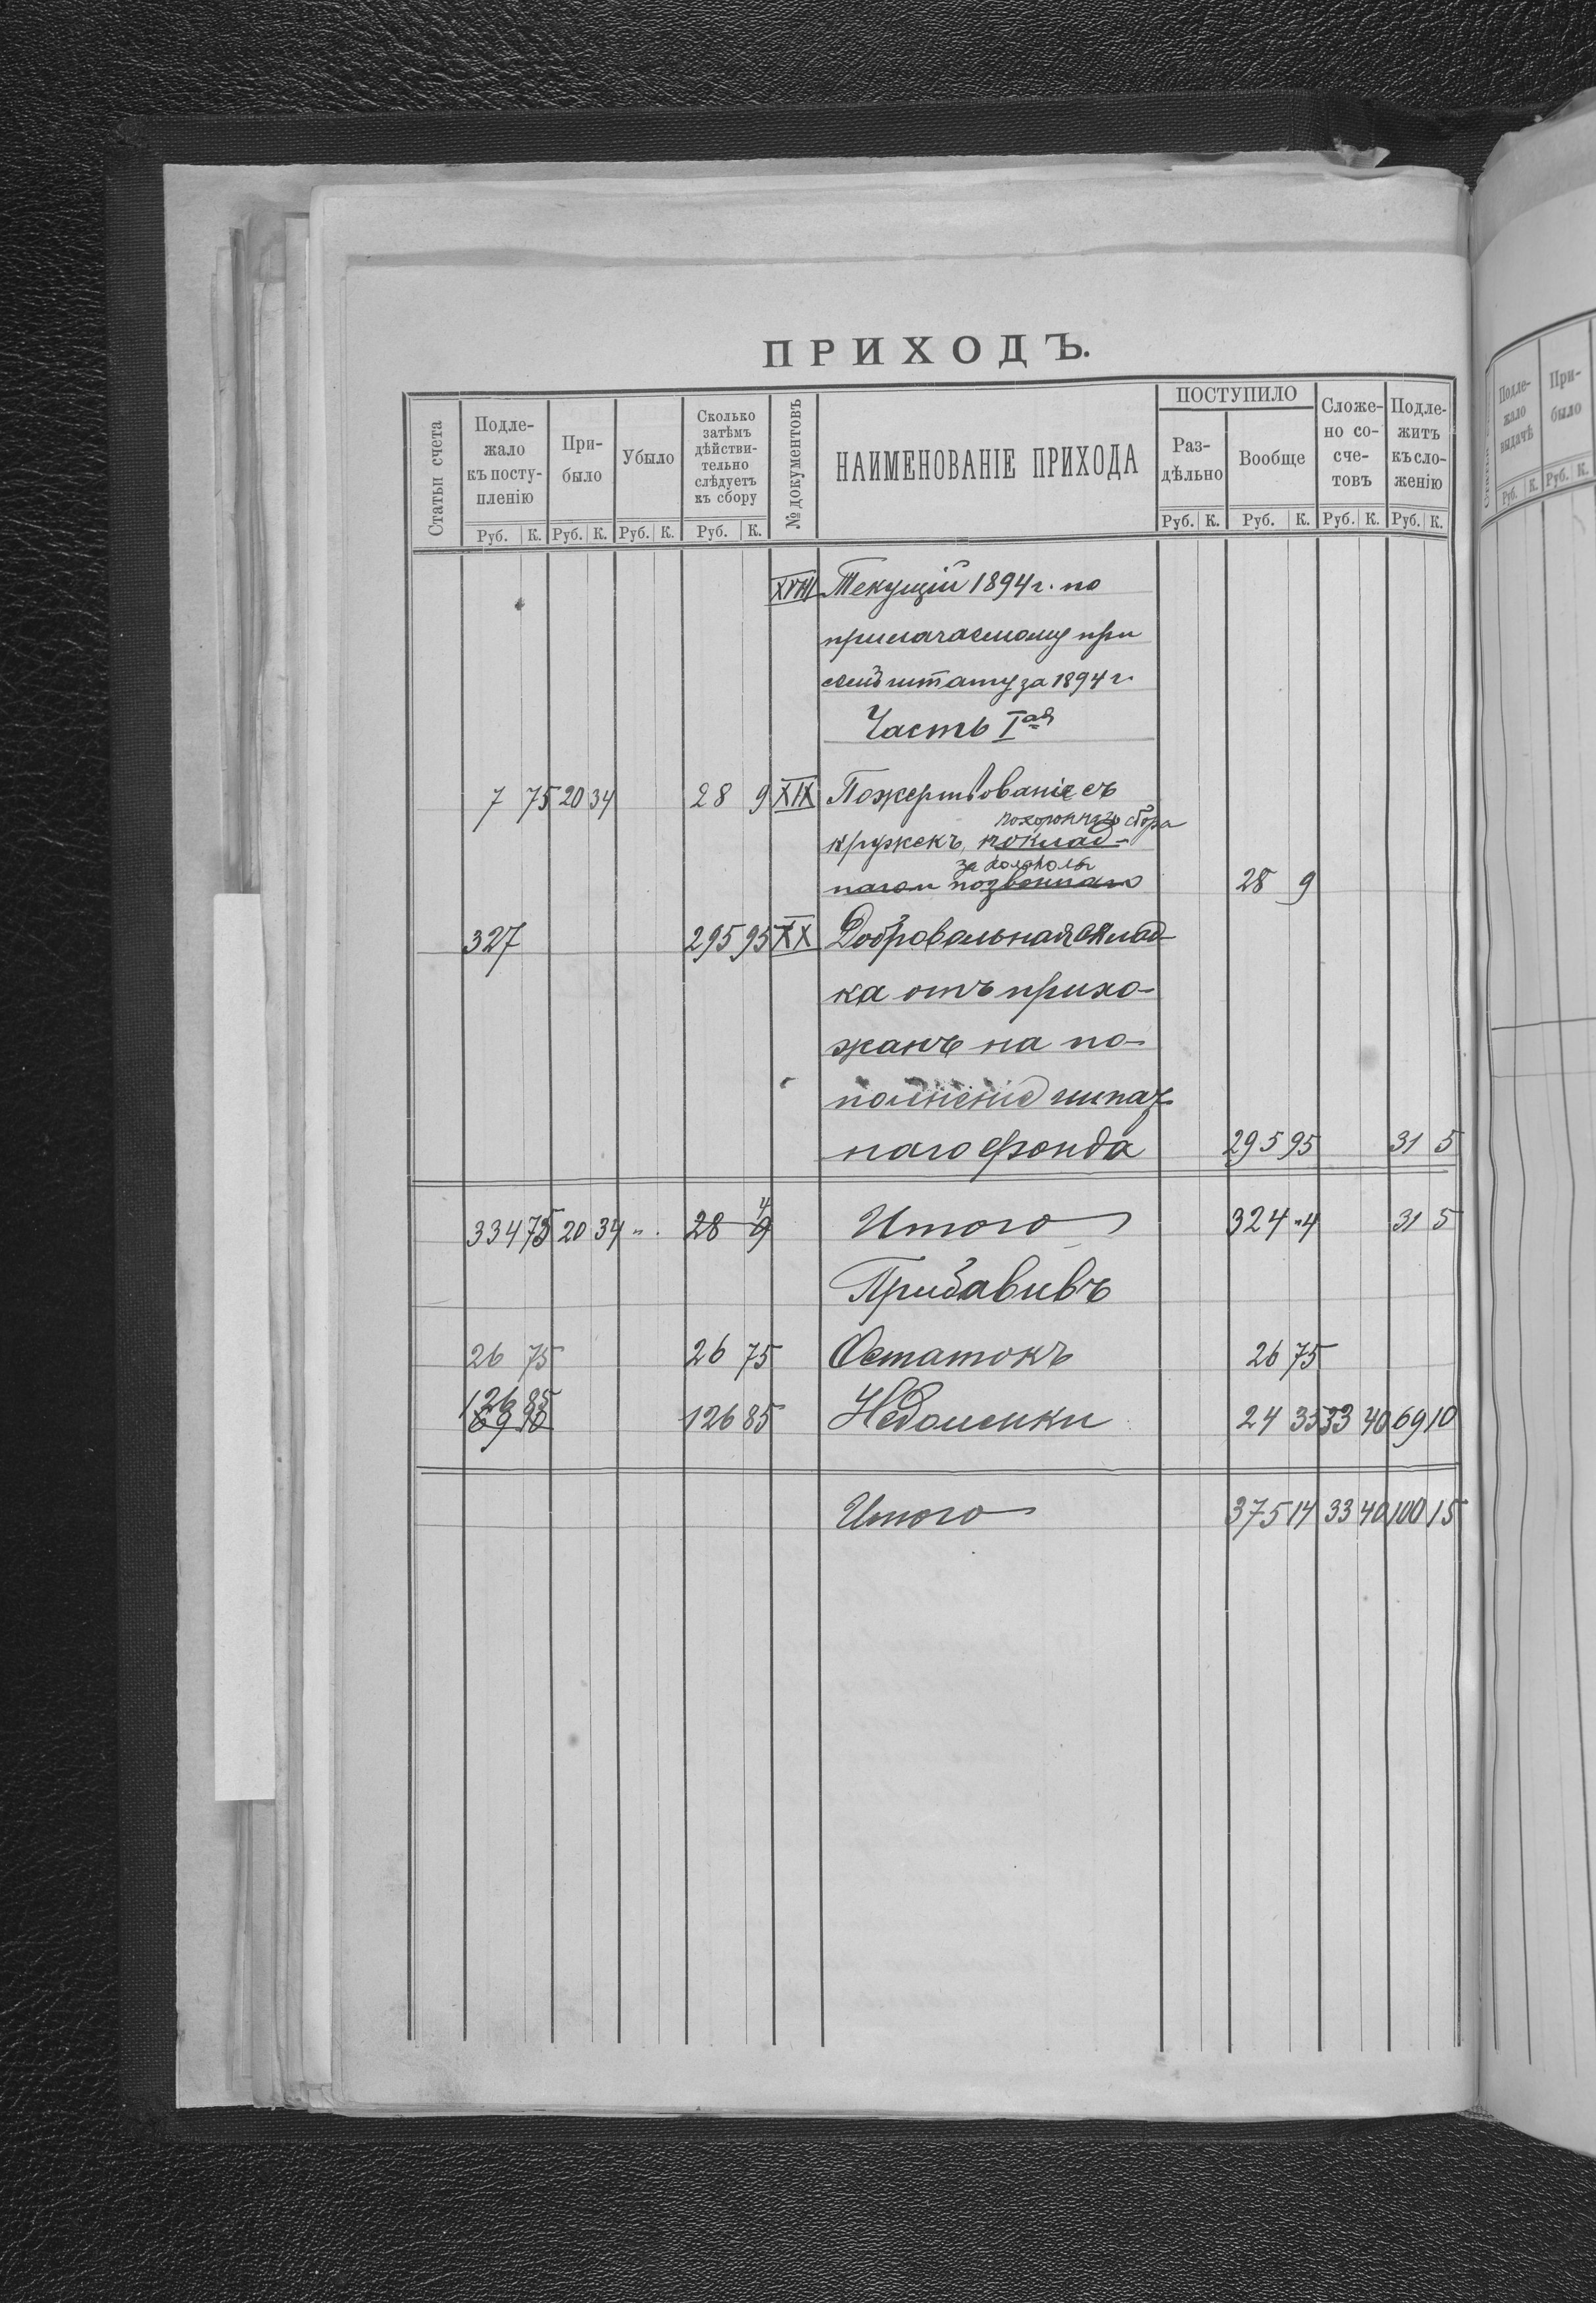 ПРИХОДЪ.
Статьи счета
Подле-
жало
къ посту-
пленію
При-
было
Убыло
Сколько
затѣмъ
дѣйстви-
тельно
слѣдуетъ
къ сбору
№ документовъ
НАИМЕНОВАНІЕ ПРИХОДА
ПОСТУПИЛО
Раз-
дѣльно
Вообще
Сложе-
но со-
сче-
товъ
Подле-
житъ
къ сло-
женію
Руб. К. Руб. К. Руб. К. Руб. К. Руб. К. Руб. К. Руб. К. Руб. К.
XVIII Текущій 1894 г. по
прилагаемому при
семъ штату за 1894 г.
Часть Iая
7 75 20 34 28 9 XIX Пожертвованіе съ
похороннаго сбора
кружекъ, поклад-
за колоколы
наго и позвоннаго 28 9
327 295 95 XX Добровольная склад-
ка отъ прихо-
жанъ на по-
полненіе
наго фонда 295 95 31 5
4
334 75 20 34 " . 28 9 Итого 324 "4 31 5
Прибавивъ
26 75 26 75 Остатокъ 26 75
126 85
69 10 126 85 Недоимки 24 35 33 40 69 10
Итого 375 14 33 40 100 15
Подле-
жало
выдачѣ
При-
было
Руб. К. Руб. К.